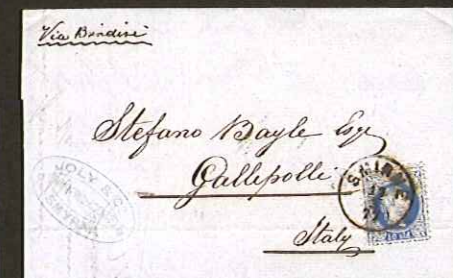 Via Brindisi
Stefano Bayle Esqe
Gallepolli
Italy
JOLY & C
SMYRNE
SMIRNE